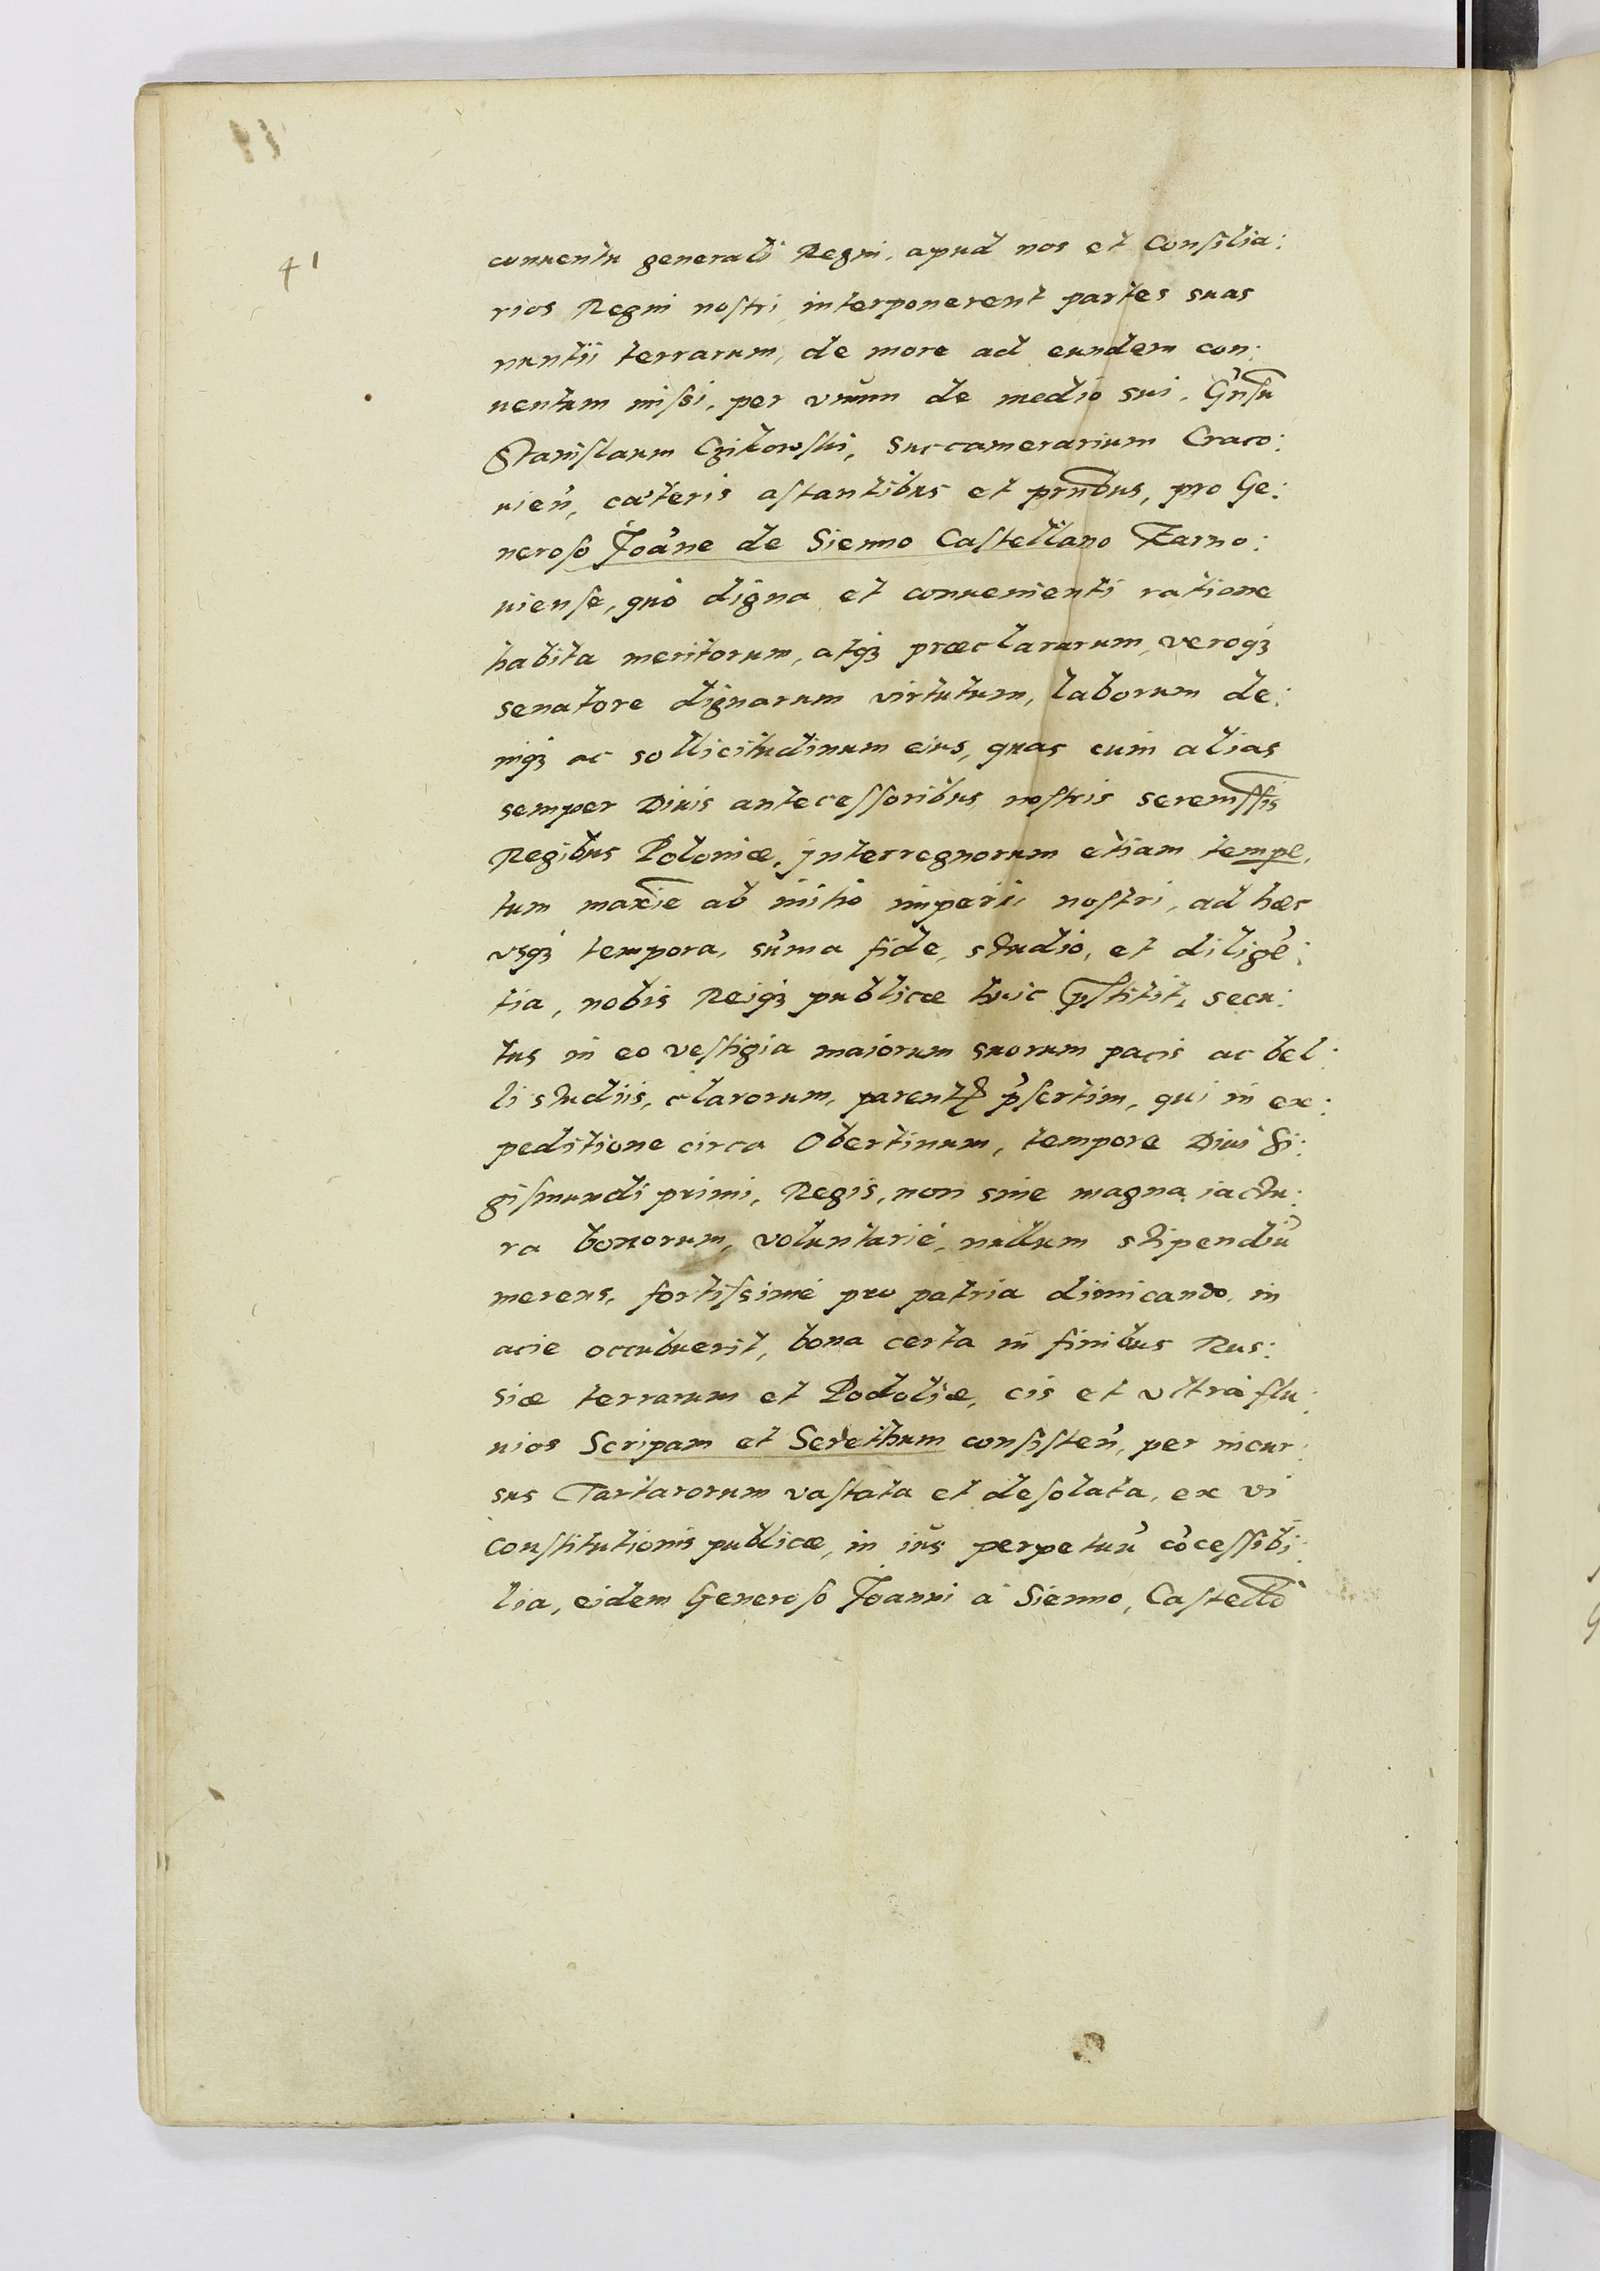 41
conuentu generali Regni, apud nos et Consilia:
rios Regni nostri, interponerent partes suas
nuntii terrarum, de more ad eundem con:
uentum missi, per vnum de medio sui, Gn̄sū
Stanislaum Czikowski, Succamerarium Craco:
uień, cæteris astantibus et prn̄tibus, pro Ge:
neroso Joāne de Sienno Castellano Zarno:
uiense, quò digna et conuenienti ratione
habita meritorum, atqꝫ præclararum, veroqꝫ
senatore dignarum virtutum, laborum de:
niqꝫ ac sollicitudinum eius, quas cum alias
semper Diuis antecessoribus nostris Sereniss̄is
Regibus Poloniæ, Interregnorum etiam tempe,
tum maxīe ab initio imperii nostri, ad hæc
vsqꝫ tempora, sūma fide, studio, et diligē:
tia, nobis Reiqꝫ publicæ huic p̄stitit, secu:
tus in eo vestigia maiorum suorum pacis ac bel:
li studiis, clarorum, parentꝭ p̄sertim, qui in ex:
peditione circa Obertinum, tempore Diui Si:
gismundi primi, Regis, non sine magna iactu:
ra bonorum, voluntariè, nullum stipendiū
merens, fortissimè pro patria dimicando, in
acie occubuerit, bona certa in finibus Rus:
siæ terrarum et Podoliæ, cis et vltrà flu:
uios Scripam et Serethum consisteń, per incur:
sus Tartarorum vastata et desolata, ex vi
constitutionis publicæ, in iūs perpetuū cōcessibi:
lia, eidem Generoso Joanni à Sienno, Castellō